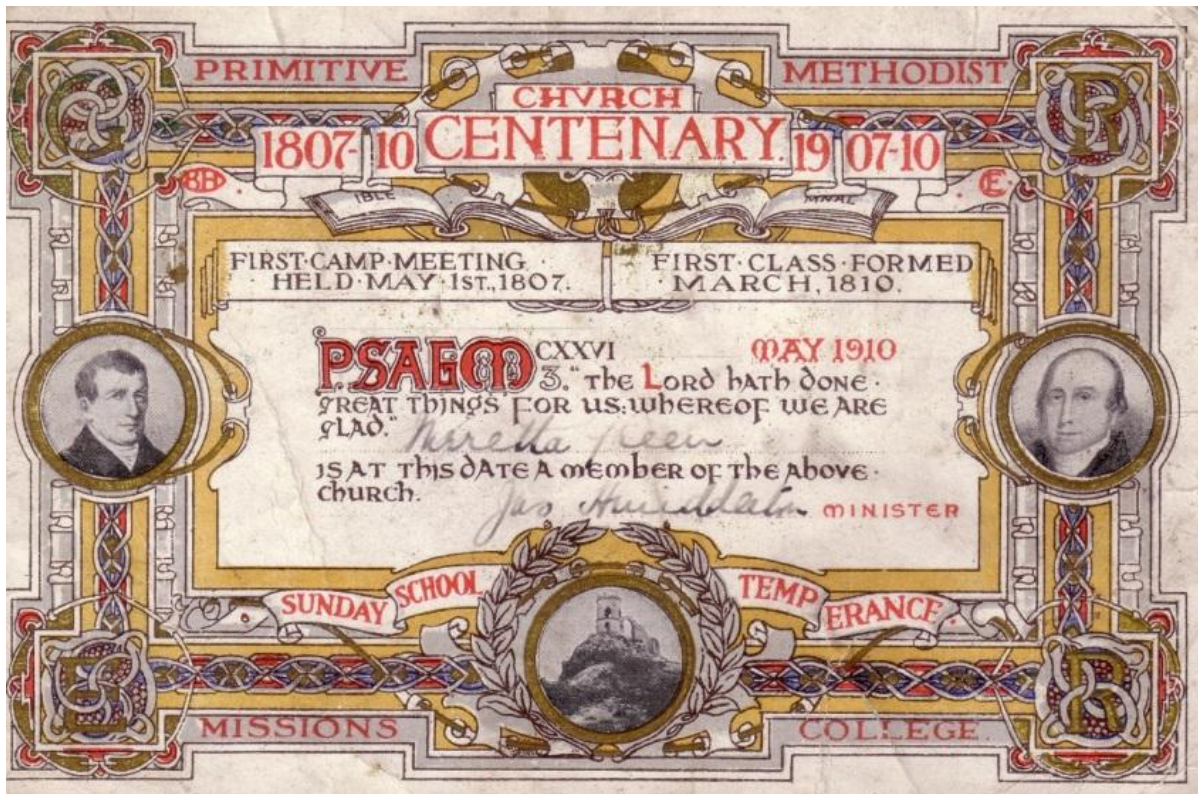 PRIMITIVE METHODIST
CHVRCH
CENTENARY.
1807-10 1907-10
BB CE
IBLE MNAL
FIRST·CAMP·MEETING
HELD·MAY·1ST.,1807.
FIRST·CLASS·FORMED
MARCH,1810.
PSALM CXXVI MAY 1910
3. "THE LORD hATh DONE
GREAT ThINGS FOR US: WhEREOF WE ARE
GLAD."
IS AT ThIS DATE A MEMBER OF ThE ABOVE
ChURCh.
Jas MINISTER
SUNDAY SCHOOL TEMPERANCE
MISSIONS COLLEGE